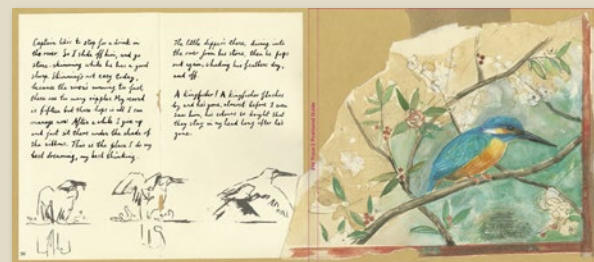 Captain likes to stop for a drink on
the river. So I slide off him, and go
stone-skimming while he has a good
slurp. Skimming's not easy today,
because the river's moving so fast
there are too many ripples. My record
is fifteen but three hops is all I can
manage now. After a while I give up
and just sit there under the shade of
the willows. This is the place I do my
best dreaming, my best thinking.
The little dipper's there, diving into
the river from his stone, then he pops
out again, shaking his feathers dry,
and off.
A kingfisher! A kingfisher flashes
by and he's gone, almost before I even
saw him, his colours so bright that
they stay in my head long after he's
gone.